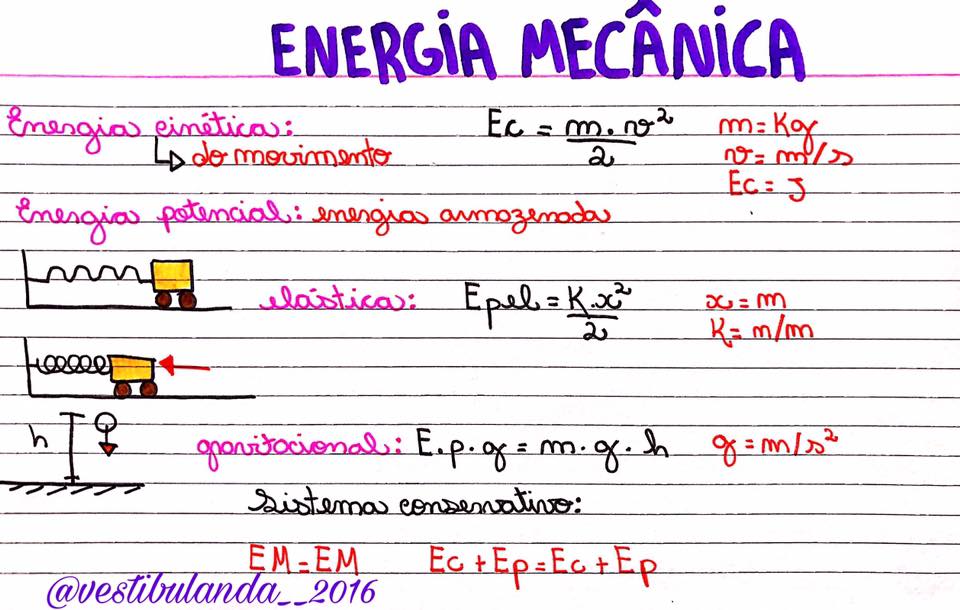 ENERGIA MECÂNICA
Energia cinética: Ec = m.v²/2 m = Kg
do movimento v = m/s
Ec = J
Energia potencial: energia armazenada
elástica: Epel = K.x²/2 x = m
K = n/m
h gravitacional: E.p.g = m.g.h g = m/s²
Sistema conservativo:
EM = EM Ec + Ep = Ec + Ep
@vestibulanda__2016